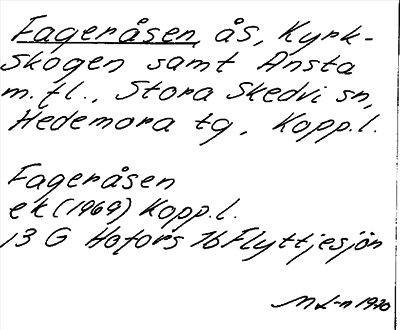 Fageråsen, ås, Kyrk-
skogen samt Ansta
m.fl., Stora Skedvi sn,
Hedemora tg, Kopp.l.
Fageråsen
ek (1969) Kopp.l.
13 G Hofors 16 Flyttjesjön
M L-n 1970